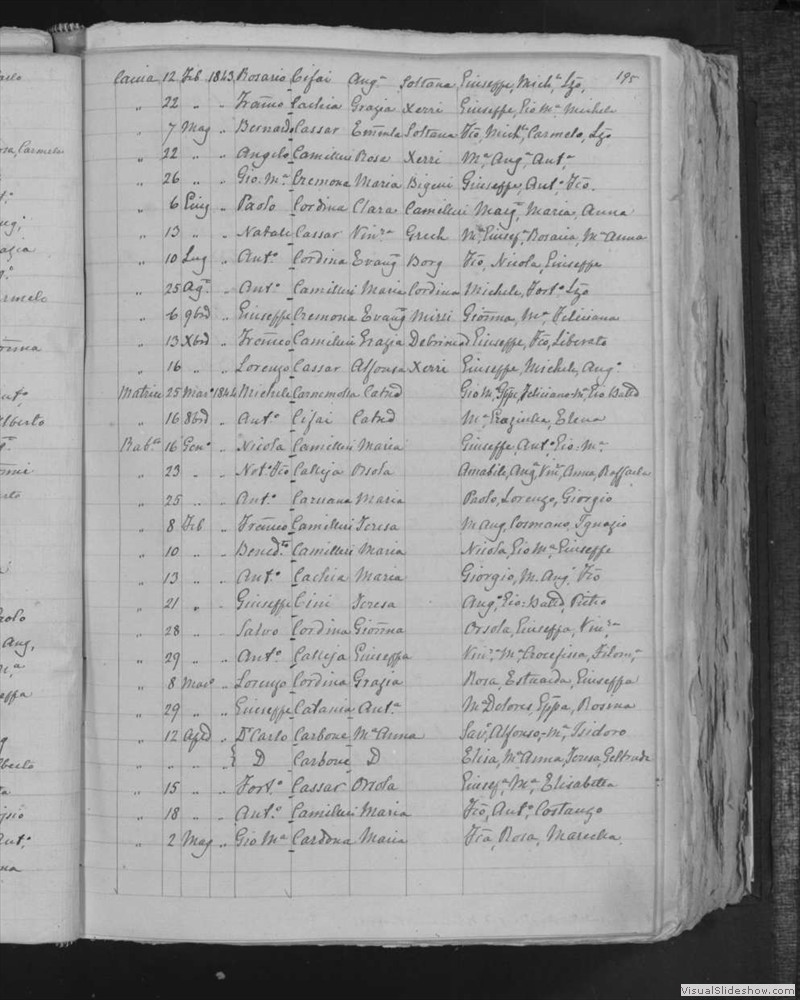 195
Caccia 12 Feb 1843 Rosario Cifai Aug.a Soltana Giuseppe, Mich.e, Lzo,
" 22 " " Franco Cachia Grazia Xerri Giuseppe, Gio M.a Michele
" 7 Mag " Bernardo Cassar Soltana Fco, Mich.e, Carmelo, Lzo
" 22 " " Angelo Camilleri Rosa Xerri M.a Aug.a Ant.a
" 26 " " Gio: M.a Cremona Maria Bigeni Giuseppe, Ant.o Fco.
" 6 Giug " Paolo Cordina Clara Camilleri Marg.a, Maria, Anna
" 13 " " Natale Cassar Vin.a Grech M.a, Giusep.a Rosaria, M.a Anna
" 10 Lug " Ant.o Cordina Evang.a Borg Fco, Nicola, Giuseppe
" 25 Ag.o " Ant.o Camilleri Maria Cordina Michele, Fort.o Lzo
" 6 9bre " Giuseppe Cremona Evang.a Mizzi Gioanna, M.a Feliciana
" 13 Xbre " Franco Camilleri Grazia Debrincat Giuseppe, Fco, Liberato
" 16 " " Lorenzo Cassar Alfonsa Xerri Giuseppe, Michele, Aug.o
Matrice 25 Mar.o 1844 Michele Catnd Gio M.a, Gppe, Feliciano M.a, Gio Battd
" 16 8bre " Ant.o Cifai Catnd M.a Graziulla, Elena
Rab.to 16 Gen.o " Nicola Camilleri Maria Giuseppe, Ant.o Gio: M.a
" 23 " " Not.o Fco Calleja Orsola Amabile, Aug.a Vin.a Anna, Raffaela
" 25 " " Ant.o Caruana Maria Paolo, Lorenzo, Giorgio
" 8 Feb " Franco Camilleri Teresa M. Aug, Cosmano, Ignazio
" 10 " " Bened.to Camilleri Maria Nicola, Gio M.a, Giuseppe
" 13 " " Ant.o Cachia Maria Giorgio, M. Aug.o Fco
" 21 " " Giuseppe Cini Teresa Aug.o Gio: Battd, Pietro
" 28 " " Salvo Cordina Gioanna Orsola, Giuseppa, Vin.a
" 29 " " Ant.o Calleja Giuseppa Vin.a M.a Crocefissa, Filom.a
" 8 Mar.o " Lorenzo Cordina Grazia Rosa, Giuseppa
" 29 " " Giuseppe Catania Ant.a M.a Dolores, Gppa, Rosina
" 12 " Dr Carlo Carbone M.a Anna Sav.o, Alfonso M.a, Isidoro
" " " " { D Carbone D Elisa, M.a Anna, Teresa, Geltruda
" 15 " " Fort.o Cassar Orsola Giusep.a M.a Elisabetta
" 18 " " Ant.o Camilleri Maria Fco, Ant.o Costanzo
" 2 Mag " Gio M.a Cardona Maria Fca, Rosa,
VisualSlideshow.com